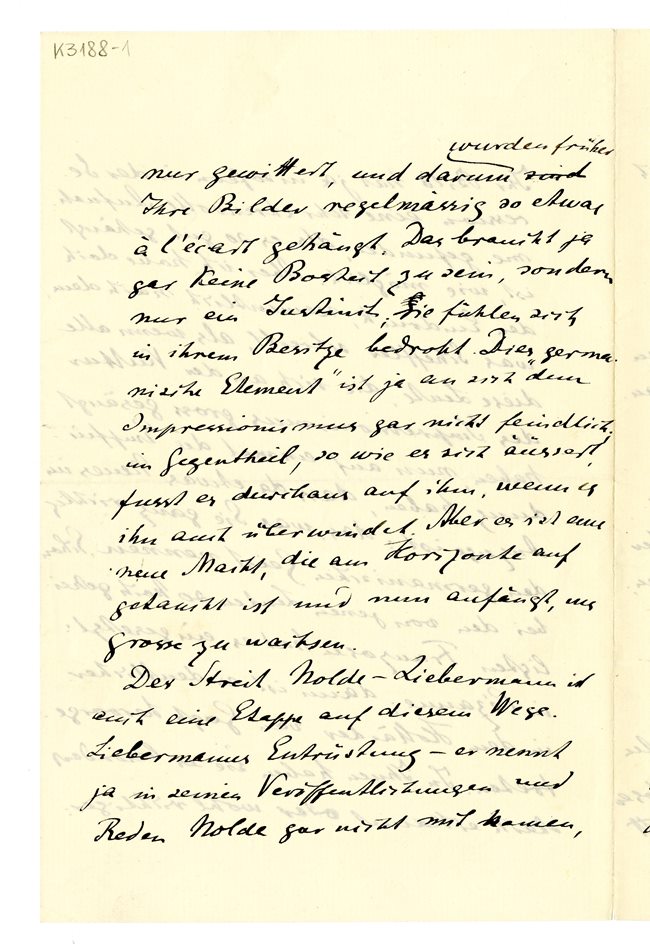 K3188-1
wurden früher
nur gewittert, und darum sind
Ihre Bilder regelmässig so etwas
à l'écart gehängt. Das braucht ja
gar keine Bosheit zu sein, sondern
nur ein Instinct, Sie fühlen sich
in ihrem Besitze bedroht. Dies „germa-
nische Element" ist ja an sich dem
Impressionismus gar nicht feindlich,
im Gegentheil, so wie es sich äussert,
fusst es durchaus auf ihm, wenn es
ihn auch überwindet. Aber es ist eine
neue Macht, die am Horizonte auf
getaucht ist und nun anfängt, ins
grosse zu wachsen.
Der Streit Nolde – Liebermann ist
auch eine Etappe auf diesem Wege.
Liebermanns Entrüstung – er nennt
ja in seinen Veröffentlichungen und
Reden Nolde gar nicht mit Namen,